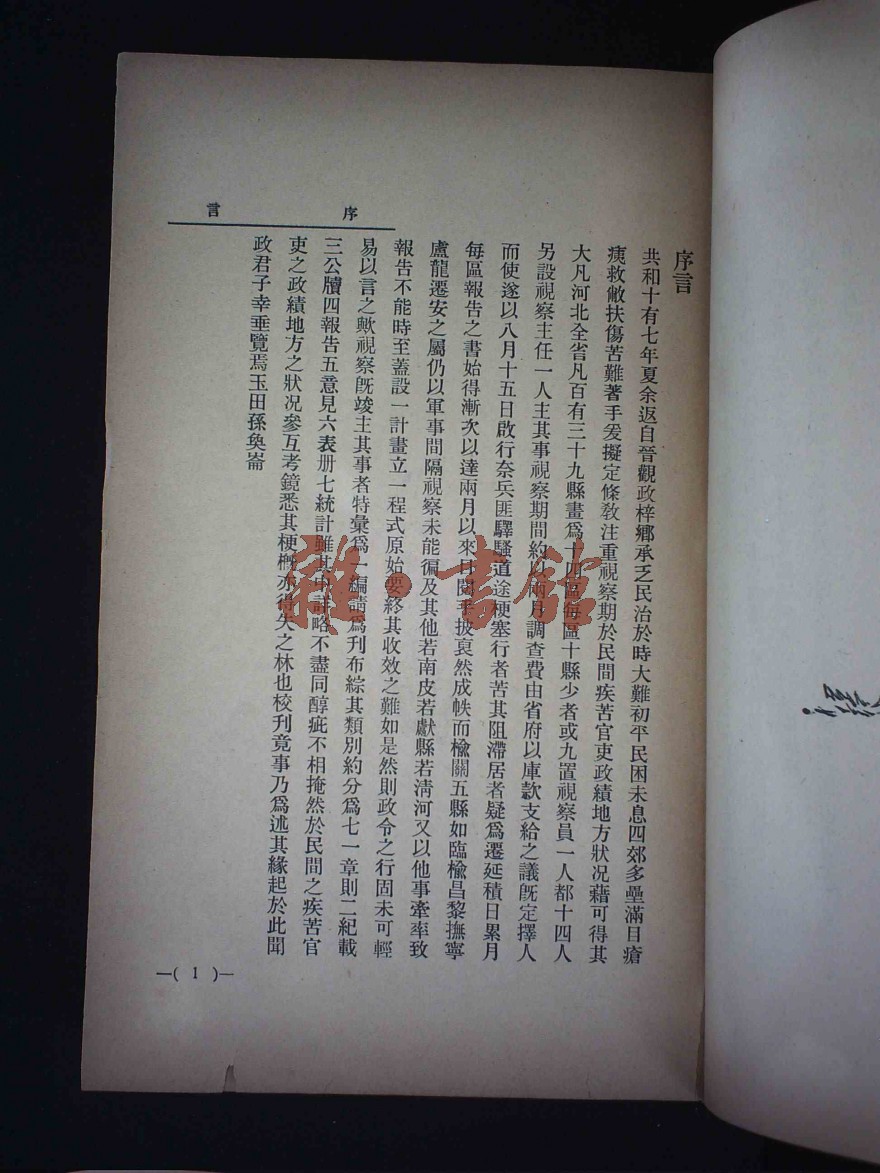 序言
序言
共和十有七年夏余返自晉觀政梓鄉承乏民治於時大難初平民困未息四郊多壘滿目瘡
痍救敝扶傷苦難著手爰擬定條教注重視察期於民間疾苦官吏政績地方狀况藉可得其
大凡河北全省凡百有三十九縣畫爲十四區每區十縣少者或九置視察員一人都十四人
另設視察主任一人主其事視察期間約以兩月調查費由省府以庫款支給之議既定擇人
而使遂以八月十五日啟行奈兵匪驛騷道途梗塞行者苦其阻滯居者疑爲遷延積日累月
每區報告之書始得漸次以達兩月以來日閱手披裒然成帙而楡關五縣如臨楡昌黎撫寧
盧龍遷安之屬仍以軍事間隔視察未能徧及其他若南皮若獻縣若淸河又以他事牽率致
報告不能時至蓋設一計畫立一程式原始要終其收效之難如是然則政令之行固未可輕
易以言之歟視察既竣主其事者特彙爲一編請爲刋布綜其類別約分爲七一章則二紀載
三公牘四報告五意見六表册七統計雖其中詳略不盡同醇疵不相掩然於民間之疾苦官
吏之政績地方之狀况參互考鏡悉其梗槪亦得失之林也校刋竟事乃爲述其緣起於此聞
政君子幸垂覽焉玉田孫奐崙
—( 1 )—
雜·書館